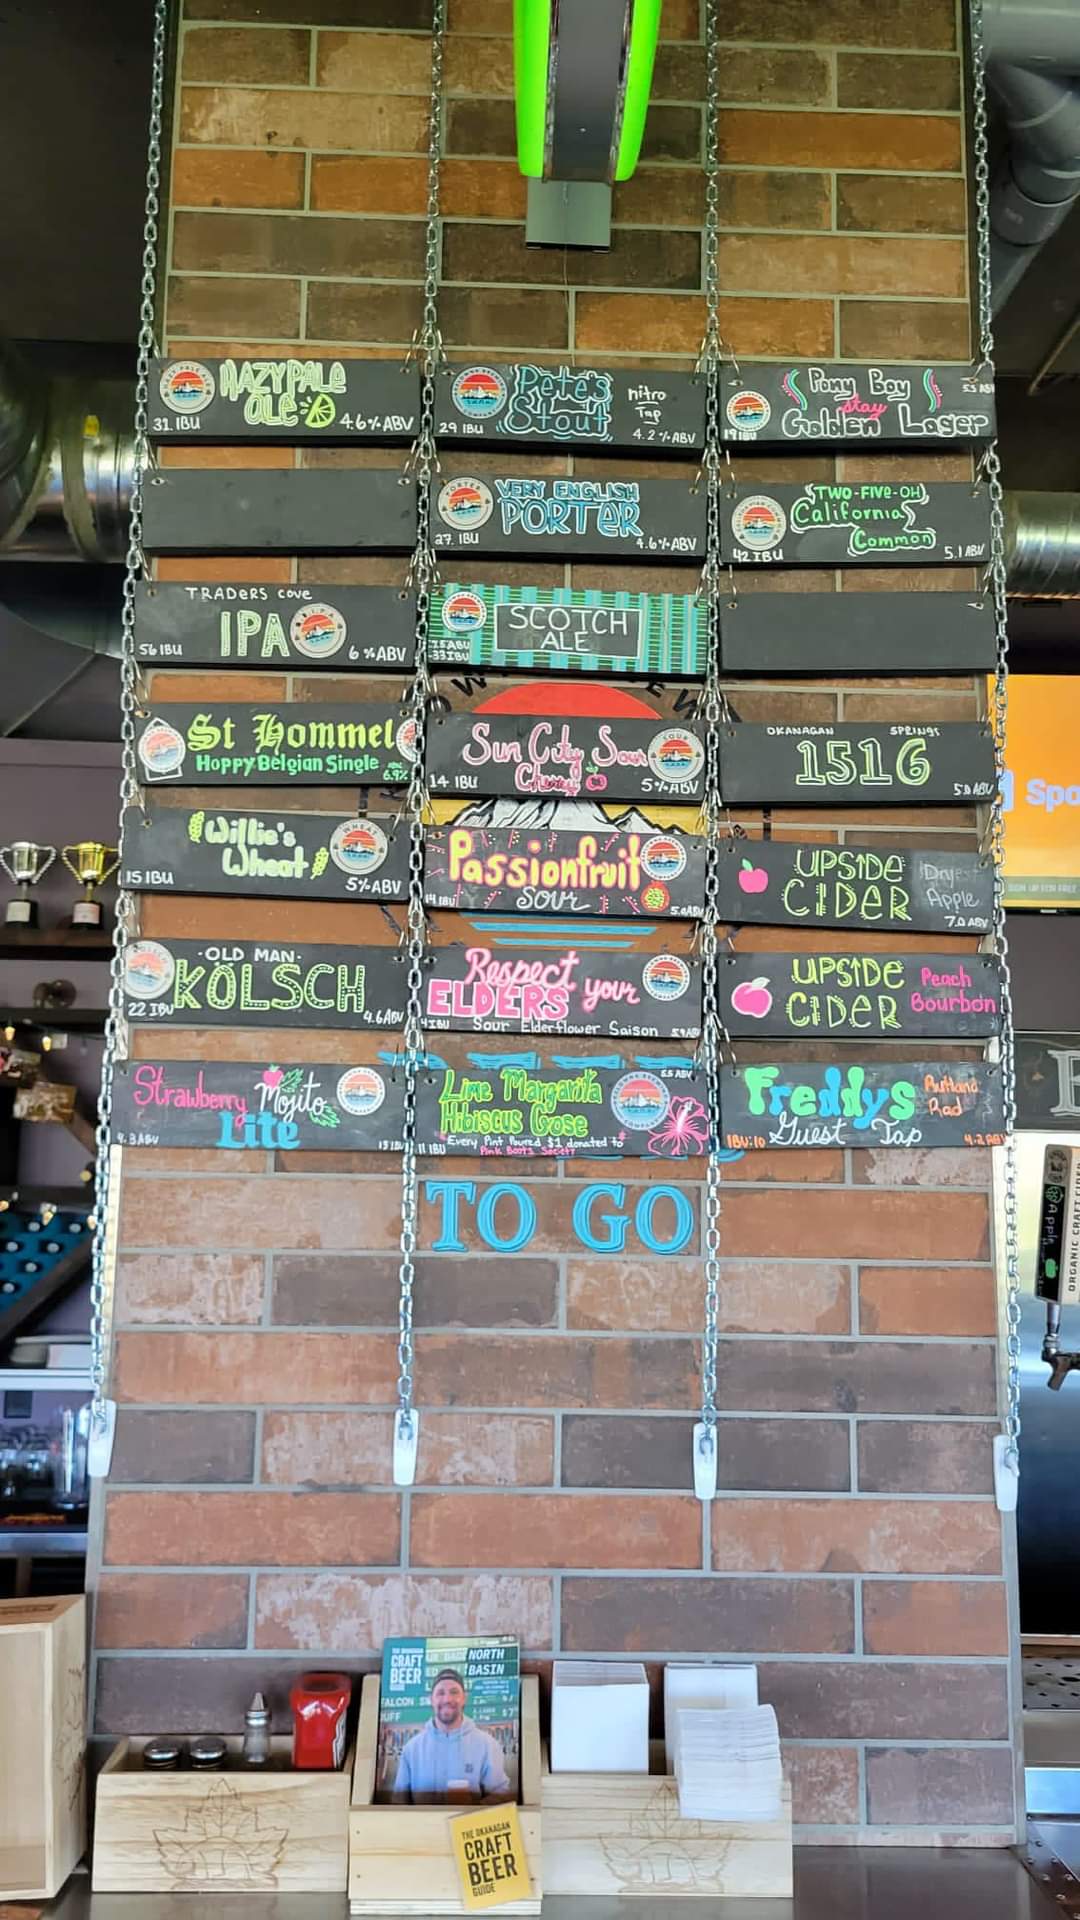 HAZY PALE
ALE
31 IBU
4.6% ABV
Pete's
Stout
nitro
Tap
29 IBU
4.2% ABV
Pony Boy
stay
Golden Lager
19 IBU
VERY ENGLISH
PORTER
27 IBU
4.6% ABV
TWO-FIVE-OH
California
Common
42 IBU
5.1 ABV
TRADERS COVE
IPA
56 IBU
6% ABV
SCOTCH
ALE
33 IBU
St Hommel
Hoppy Belgian Single
6.9%
Sun City Sour
Cherry
14 IBU
5% ABV
OKANAGAN SPRINGS
1516
5.0 ABV
Willie's
Wheat
15 IBU
5% ABV
Passionfruit
Sour
UPSIDE
CIDER
Dryest
Apple
7.0 ABV
OLD MAN
KÖLSCH
22 IBU
4.6 ABV
Respect your
ELDERS
Sour Elderflower Saison
UPSIDE
CIDER
Peach
Bourbon
Strawberry Mojito
Lite
4.3 ABV
Lime Margarita
Hibiscus Gose
5.5 ABV
11 IBU
Every Pint Poured $1 donated to
Pink Boots Society
Freddys
Guest Tap
Rutland
Rad
IBU:10
4.2 ABV
TO GO
Spo
Apple
ORGANIC CRAFT CIDER
CRAFT
BEER
GUIDE
NORTH
BASIN
THE OKANAGAN
CRAFT
BEER
GUIDE